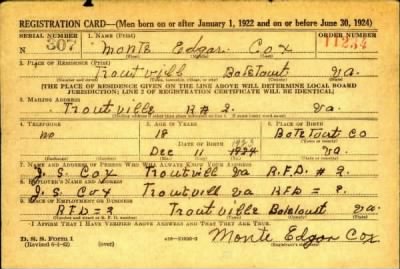 REGISTRATION CARD—(Men born on or after January 1, 1922 and on or before June 30, 1924)
SERIAL NUMBER 1. NAME (Print) ORDER NUMBER
307 Monte Edgar Cox 11234
(First) (Middle) (Last)
2. PLACE OF RESIDENCE (Print)
Troutville Botetourt Va.
(Number and street) (Town, township, village, or city) (County) (State)
[THE PLACE OF RESIDENCE GIVEN ON THE LINE ABOVE WILL DETERMINE LOCAL BOARD
JURISDICTION; LINE 2 OF REGISTRATION CERTIFICATE WILL BE IDENTICAL]
3. MAILING ADDRESS
Troutville R# 2. Va.
4. TELEPHONE 5. AGE IN YEARS 6. PLACE OF BIRTH
no 18 Botetourt Co
DATE OF BIRTH
Dec 11 Va.
7. NAME AND ADDRESS OF PERSON WHO WILL ALWAYS KNOW YOUR ADDRESS
J. S. Cox Troutvill Va R.F.D. # 2.
8. EMPLOYER'S NAME AND ADDRESS
J. S. Cox Troutvill Va RFD = 2.
9. PLACE OF EMPLOYMENT OR BUSINESS
RFD = 2 Troutville Botetourt Va.
I AFFIRM THAT I HAVE VERIFIED ABOVE ANSWERS AND THAT THEY ARE TRUE.
D. S. S. Form 1
(Revised 6-9-42) (over) Monte Edgar Cox